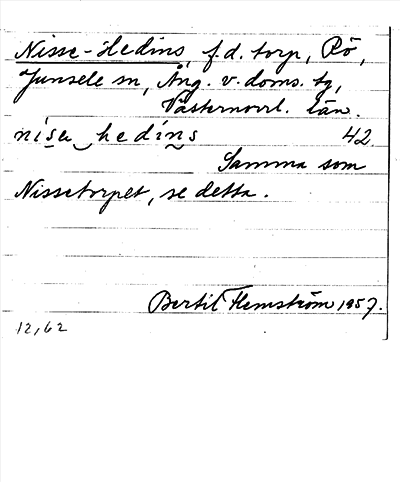 Nisse-Hedins, f.d. torp, Rö,
Junsele sn, Ång. v. doms. tg,
Västernorrl. län.
nisu hedins 42
Samma som
Nissetorpet, se detta.
Bertil Flemström 1957.
12,62